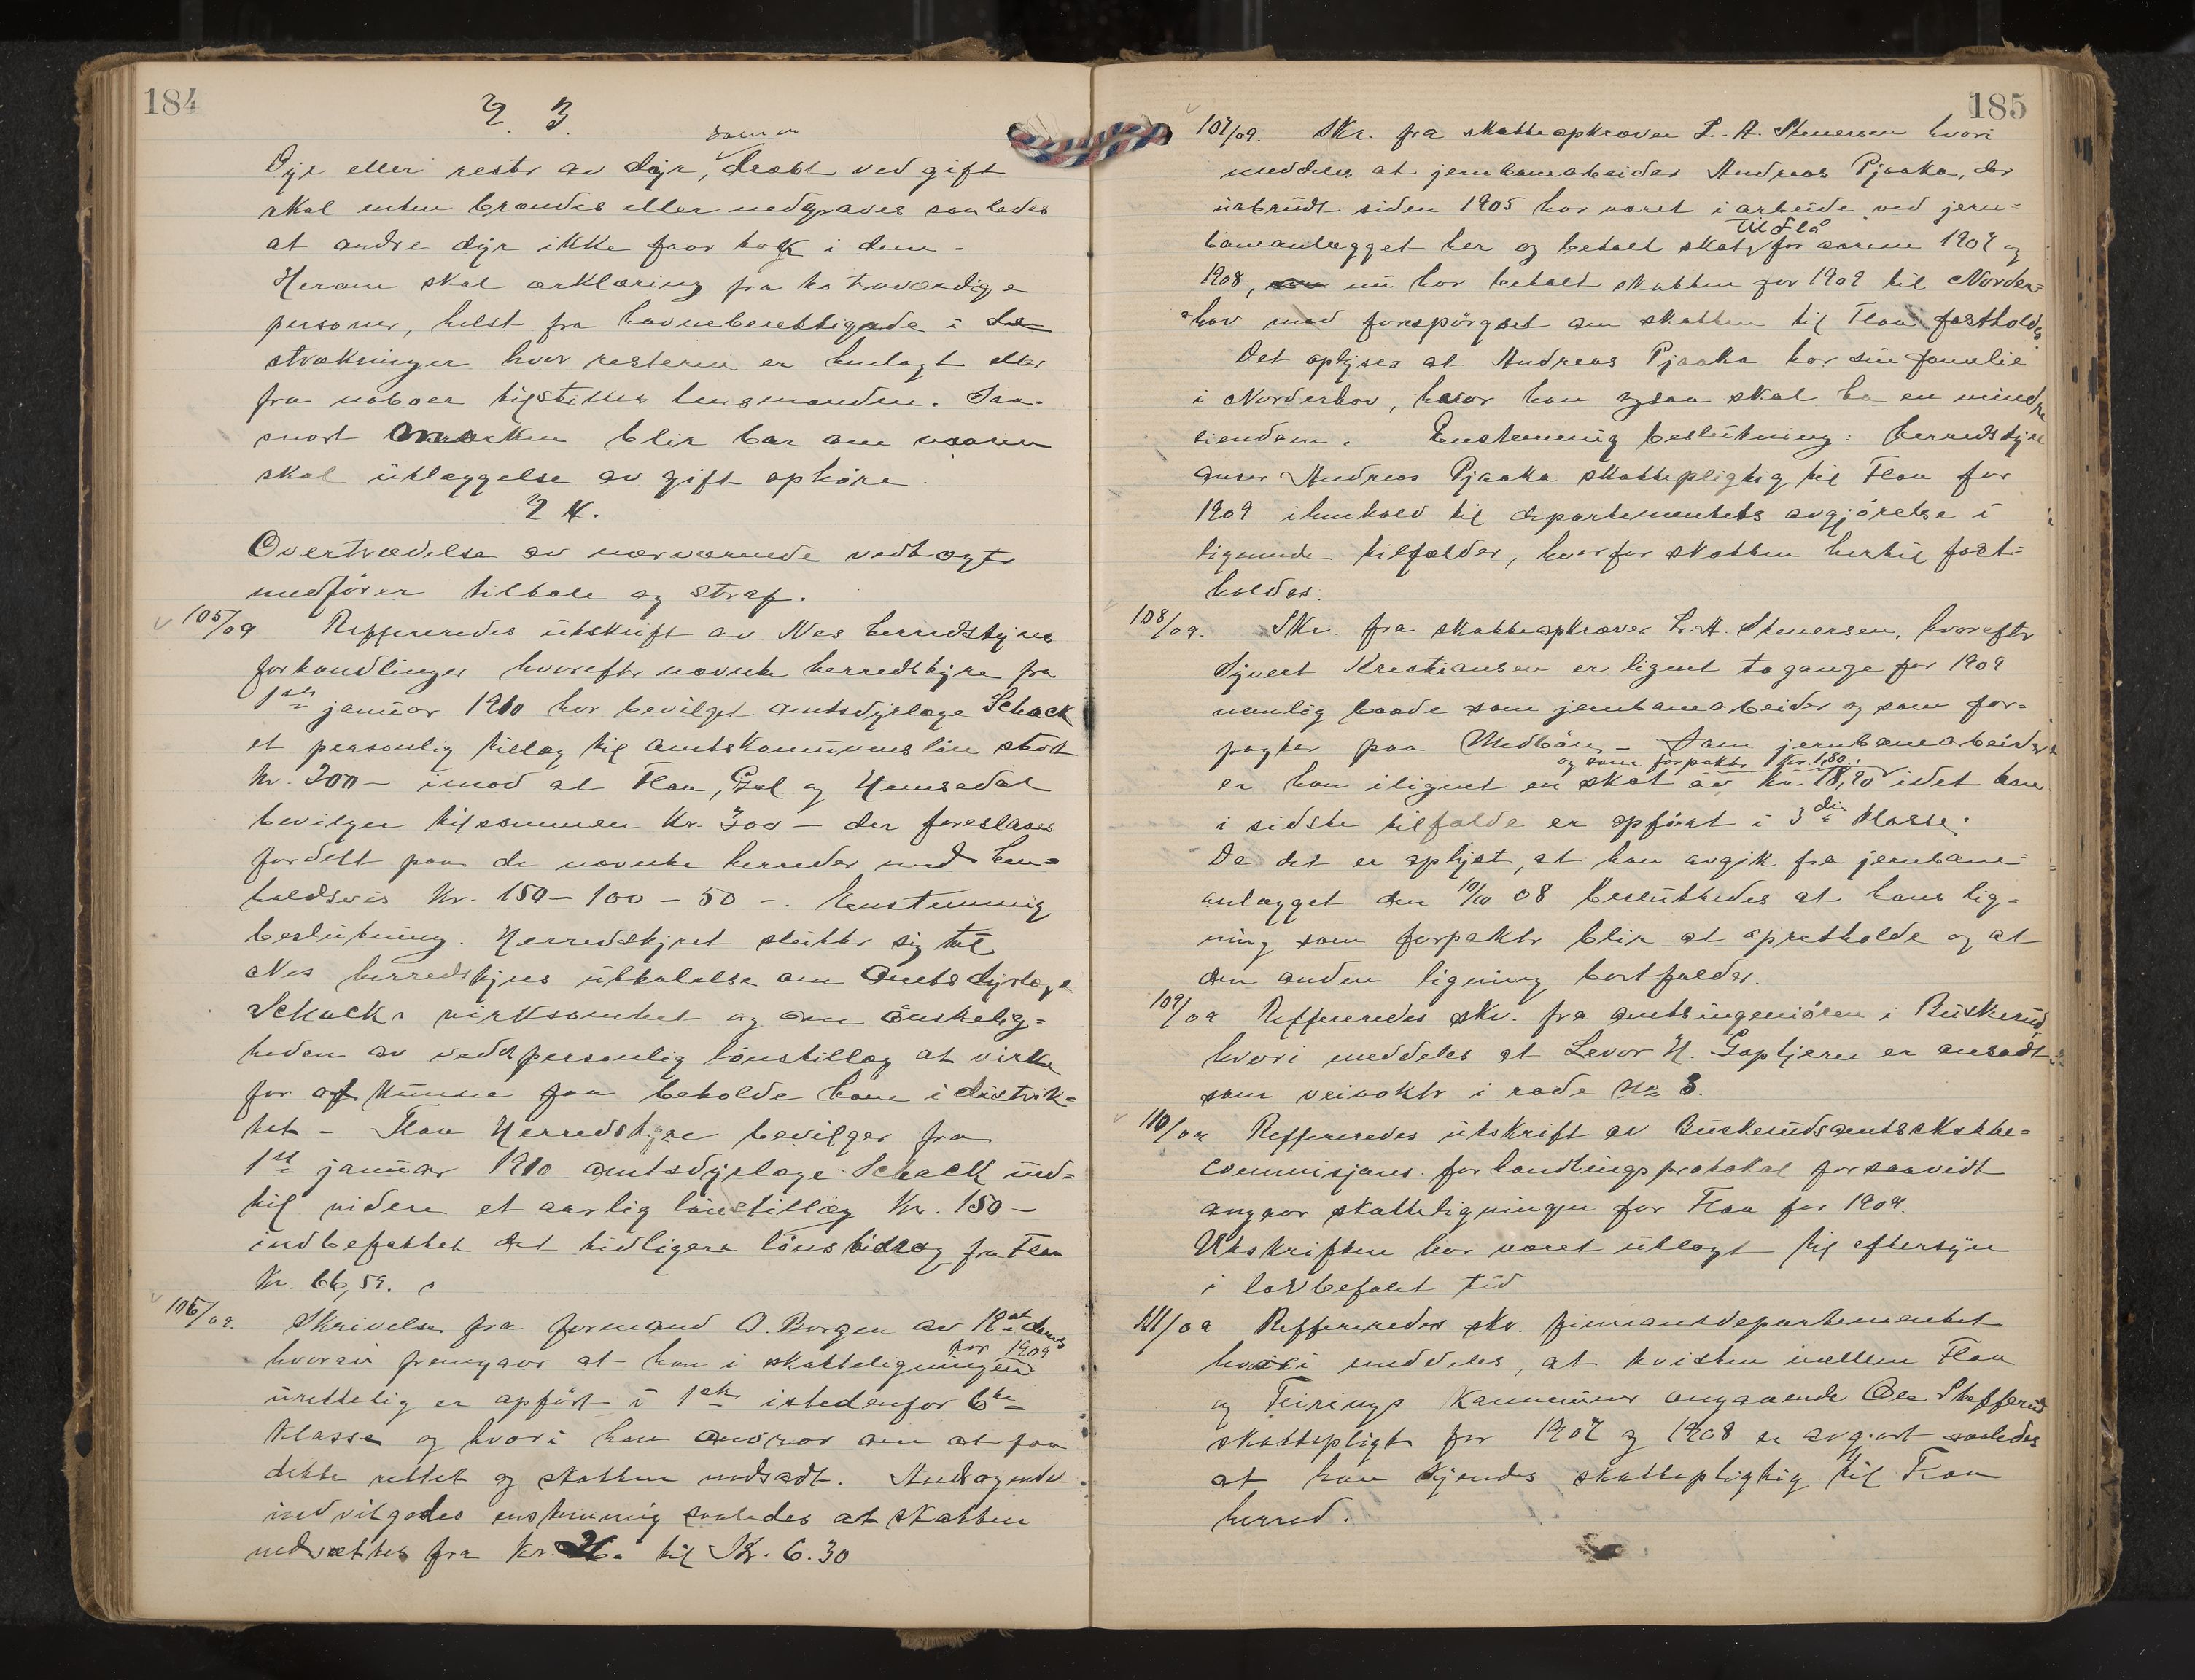 184
§ 3.
som er
Dyr eller rester av dyr, dræbt ved gift
skal enten brændes eller nedgraves saaledes
at andre dyr ikke faar tak i dem -
Herom skal ærklæring fra to troværdige
personer, helst fra havneberettigede i de
strækninger hvor resterne er henlagt eller
fra naboer tilstilles lensmanden. Saa-
snart marken blir bar om vaaren
skal utlæggelse av gift ophöre.
§ 4.
Overtrædelse av nærværende vedtægter
medförer tiltale og straf.
105/09 Reffereredes utskrift av Nes herredstyres
forhandlinger hvorefter nævnte herredstyre fra
1ste januar 1910 har bevilget amtsdyrlæge Schack
et personlig tillæg til amtskommunens lön stort
Kr. 300 - imod at Flaa, Gol og Hemsedal
bevilger tilsammen Kr. 300 - der foreslaaes
fordelt paa de nævnte herreder med hen=
holdsvis Kr. 150 - 100 - 50 -. Enstemmig
beslutning. Herredstyret slutter sig til
Nes herredstyres uttalelse om Amtsdyrlæge
Schacks virksomhet og om önskelig=
heden av ved personlig lönstillæg at virke
for at kunne faa beholde ham i distrik=
tet - Flaa Herredstyre bevilger fra
1ste januar 1910 amtsdyrlæge Schack ind=
til videre et aarlig lönstillæg Kr. 150 -
indbefattet det tidligere lönsbidrag fra Flaa
Kr. 66,59.
106/09. Skrivelse fra formand O. Borgen av 19de dennes
for 1909
hvorav fremgaar at han i skatteligningen
urettelig er opfört i 1ste istedenfor 6te
Klasse og hvori han andrar om at faa
dette rettet og skatten nedsadt. Andragendet
indvilgedes enstemmig saaledes at skatten
nedsættes fra Kr. 26. til Kr. 6.30
185
107/09. Skr. fra skatteopkræver L. A. Stenersen hvori
meddeles at jernbanearbeider Andreas Pjaaka, der
uabrudt siden 1905 har været i arbeide ved jern=
til Flå
baneanlægget her og betalt skat for aarene 1907 og
1908, nu har betalt skatten for 1909 til Norder=
hov med forespörgsel om skatten til Flaa fastholdes.
Det oplyses at Andreas Pjaaka har sin familie
i Norderhov, hvor han ogsaa skal ha en mindre
eiendom. Enstemmig beslutning: Herredstyret
anser Andreas Pjaaka skattepligtig til Flaa for
1909 i henhold til departementets avgjörelse i
lignende tilfælder, hvorfor skatten hertil fast=
holdes.
108/09. Skr. fra skatteopkræver L. A. Stenersen, hvorefter
Syvert Kristiansen er lignet to gange for 1909
nemlig baade som jernbanearbeider og som for=
pagter paa Medbön - Som jernbanearbeider
og som forpakter Kr. 1,80.
er han ilignet en skat av Kr. 18,90 idet han
i sidste tilfælde er opfört i 3die Klasse.
Da det er oplyst, at han avgik fra jernbane=
anlægget den 10/10 08 besluttedes at hans lig=
ning som forpakter blir at opretholde og at
den anden ligning bortfalder.
109/09 Reffereredes skr. fra amtsingeniören i Buskerud,
hvori meddeles at Levor H. Gaptjern er ansadt
som veivokter i rode No 3.
110/09 Reffereredes utskrift av Buskerudsamtsskatte=
commisjons forhandlingsprotokol forsaavidt
angaar skatteligningen for Flaa for 1909.
Utskriften har været utlagt til eftersyn
i lovbefalet tid
111/09 Reffereredes skr. finansdepartementet
hvori meddeles, at tvisten mellem Flaa
og Feirings Kommuner angaaende Ole Stefferud
skattepligt for 1907 og 1908 er avgjort saaledes
at han kjendes skattepligtig til Flaa
herred.